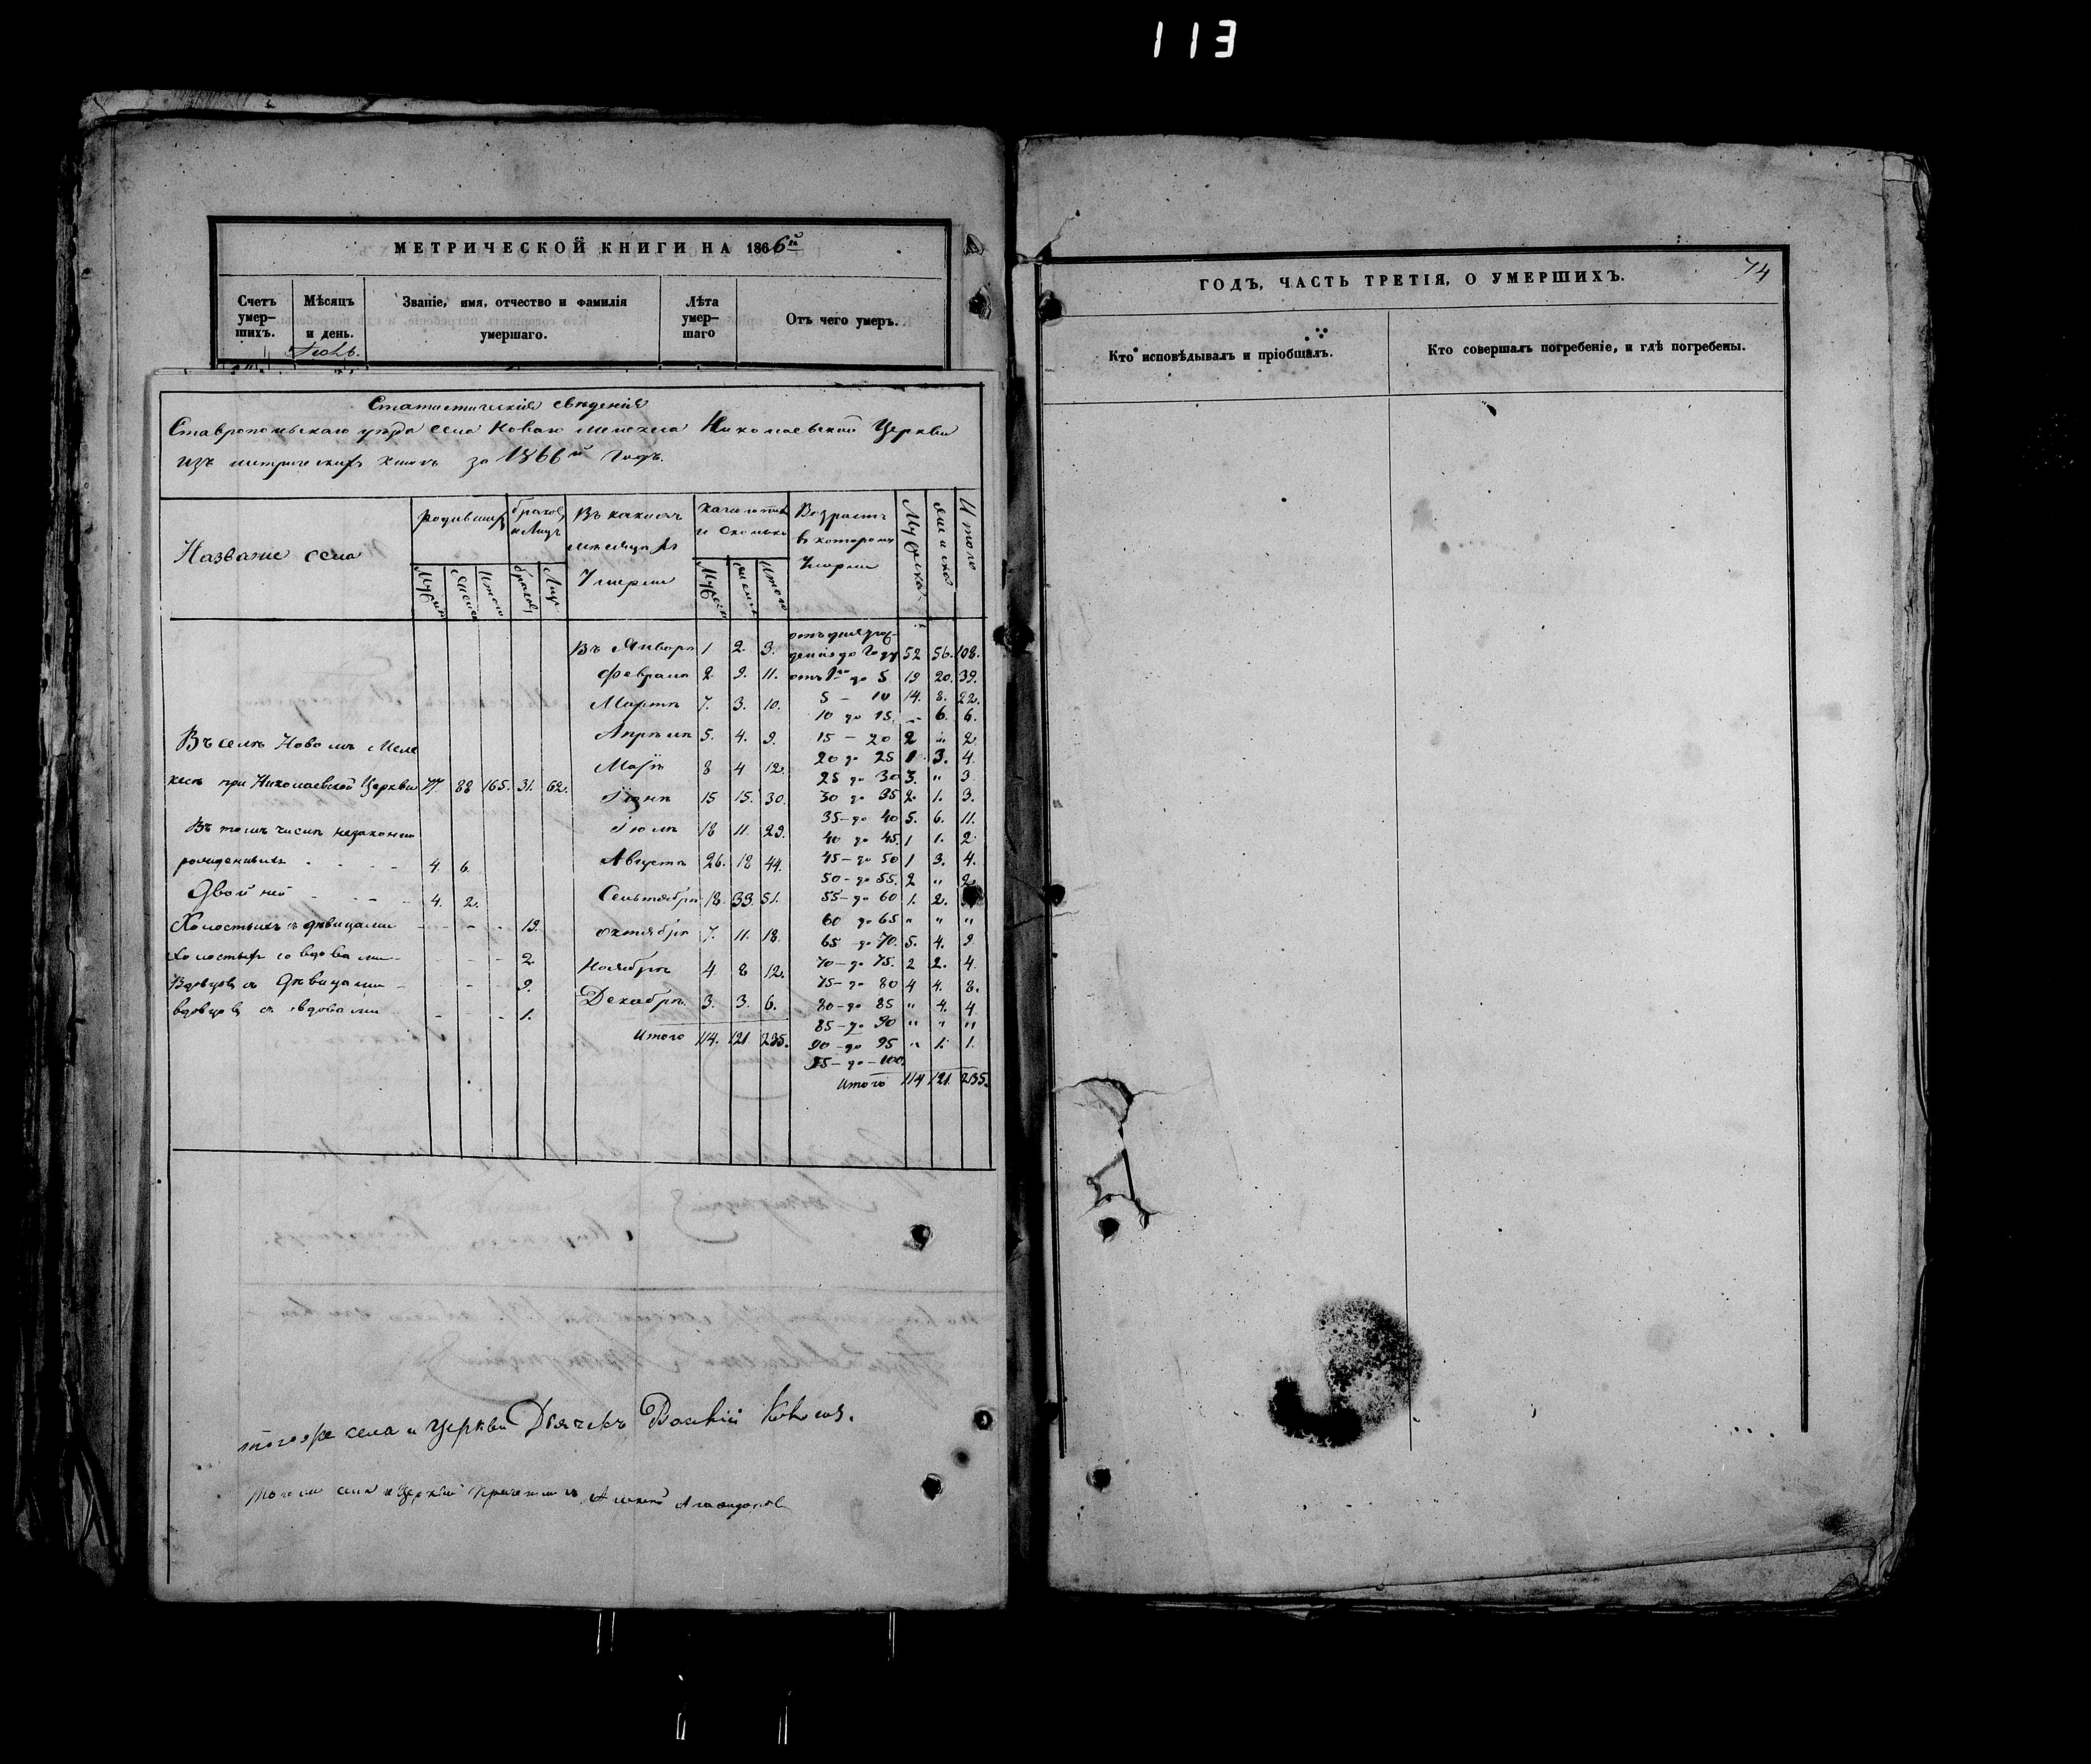 113
МЕТРИЧЕСКОЙ КНИГИ НА 1866й
Счетъ умер- шихъ.
Мѣсяцъ и день.
Званіе, имя, отчество и фамилія умершаго.
Лѣта умер- шаго
Отъ чего умеръ.
Статистическія свѣденія
Ставропольскаго уѣзда села Новаго Мелекеса Николаевской Церкви
изъ метрическихъ книгъ за 1866й годъ.
Название села
родивших
браков и Лицъ
Въ каком месяце
Умерли
и сколько
Возрастъ в котором Умерли
Итого
Въ Январѣ 1 2. 3.
Февралѣ 2. 9. 11.
Мартѣ 7. 3. 10.
Апрѣлѣ 5. 4. 9.
Маѣ 8 4 12.
Іюнѣ 15 15. 30.
Іюлѣ 18 11. 29.
Августѣ 26. 18 44.
Сентябрѣ 18. 33. 51.
Октябрѣ 7. 11. 18.
Ноябрѣ 4 8 12.
Декабрѣ. 3. 3. 6.
Итого 114. 121 235.
52 56. 108.
до 5 19 20. 39.
5 – 10 14. 8. 22.
10 до 15. – 6. 6.
15 – 20 2 " 2
20 до 25 1 3. 4.
25 до 30 3. " 3
30 до 35 2. 1. 3.
35 – до 40 5. 6. 11.
40 до 45. 1 1. 2
45 – до 50 1 3. 4.
50 – до 55. 2 " 2
55 – до 60 1. 2.
60 до 65 " " "
65 до 70. 5. 4. 9
70 – до 75. 2 2. 4.
75 – до 80 4 4. 8.
80 – до 85 " 4. 4
85 – до 90 " " "
90 – до 95 " 1. 1.
95 – до – 100.
Итого 114 121. 235.
Въ селѣ Новомъ Меле
кесѣ при Николаевской Церкви 77. 88 165. 31. 62.
Въ томъ числѣ незаконно
рожденныхъ 4. 6.
Двойней 4. 2.
Холостыхъ с дѣвицами 19.
Холостых со вдовами 2
Вдовцовъ съ Дѣвицами 9.
вдовцовъ съ вдовами 1.
тогоже села и Церкви Дьячекъ
ГОДЪ, ЧАСТЬ ТРЕТІЯ, О УМЕРШИХЪ.
74
Кто исповѣдывалъ и пріобщалъ.
Кто совершалъ погребеніе, и гдѣ погребены.